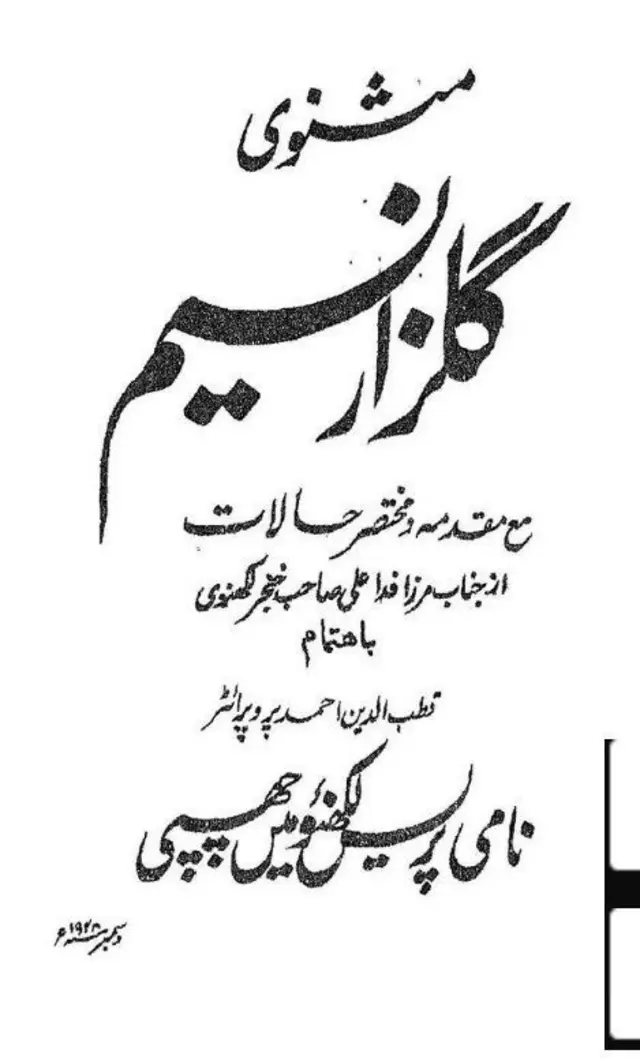 مثنوی
گلزار نسیم
مع مقدمہ و مختصر حالات
از جناب مرزا فدا علی صاحب خنجر لکھنوی
باہتمام
قطب الدین احمد پروپرائٹر
نامی پریس لکھنؤ میں چھپی
دسمبر سنہ ۱۹۲۸ء